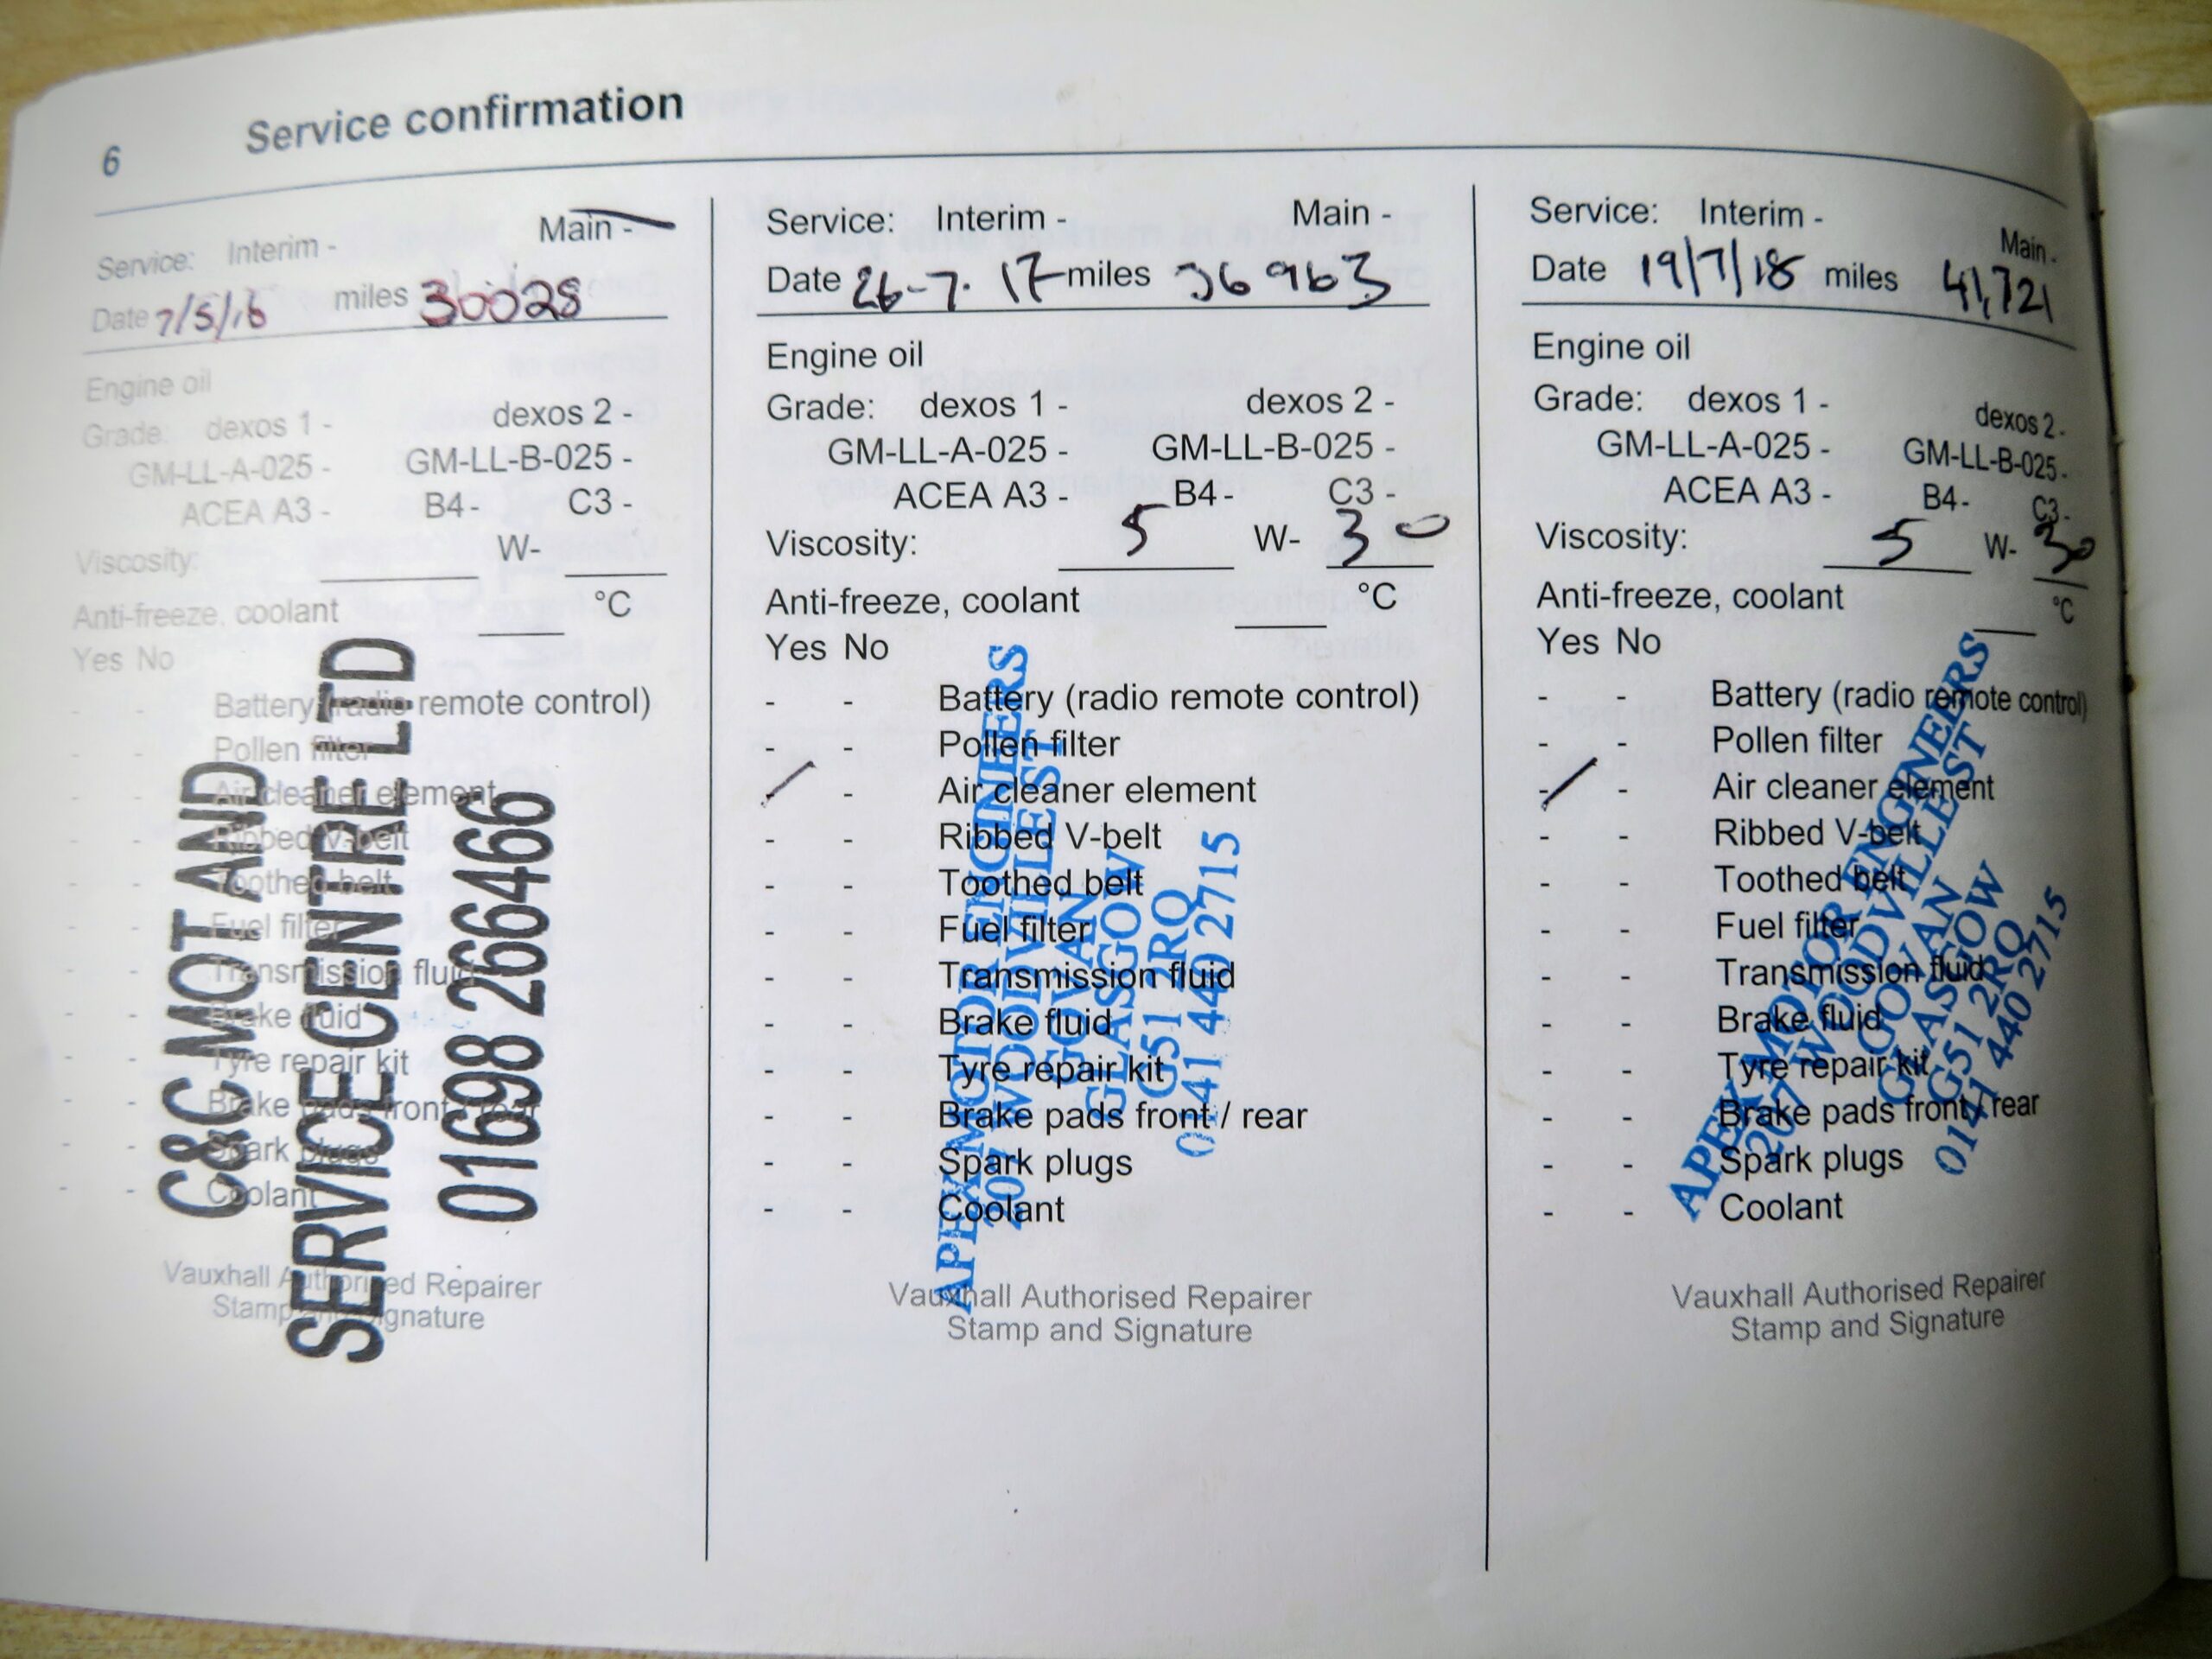 6 Service confirmation
Service: Interim - Main -
Date 7/5/16 miles 30028
Engine oil
Grade: dexos 1 - dexos 2 -
GM-LL-A-025 - GM-LL-B-025 -
ACEA A3 - B4 - C3 -
Viscosity: W-
Anti-freeze, coolant °C
Yes No
- - Battery (radio remote control)
- - Pollen filter
- - Air cleaner element
- - Ribbed V-belt
- - Toothed belt
- - Fuel filter
- - Transmission fluid
- - Brake fluid
- - Tyre repair kit
- - Brake pads front / rear
- - Spark plugs
- - Coolant
C&C MOT AND
SERVICE CENTRE LTD
01698 266466
Vauxhall Authorised Repairer
Stamp and Signature
Service: Interim - Main -
Date 26-7-17 miles 36963
Engine oil
Grade: dexos 1 - dexos 2 -
GM-LL-A-025 - GM-LL-B-025 -
ACEA A3 - B4 - C3 -
Viscosity: 5 W- 30
Anti-freeze, coolant °C
Yes No
- - Battery (radio remote control)
- - Pollen filter
- - Air cleaner element
- - Ribbed V-belt
- - Toothed belt
- - Fuel filter
- - Transmission fluid
- - Brake fluid
- - Tyre repair kit
- - Brake pads front / rear
- - Spark plugs
- - Coolant
APEX MOTOR ENGINEERS
207 WOODVILLE ST
GOVAN
GLASGOW
G51 2RQ
0141 440 2715
Vauxhall Authorised Repairer
Stamp and Signature
Service: Interim - Main -
Date 19/7/18 miles 41,721
Engine oil
Grade: dexos 1 - dexos 2 -
GM-LL-A-025 - GM-LL-B-025 -
ACEA A3 - B4 - C3 -
Viscosity: 5 W- 30
Anti-freeze, coolant °C
Yes No
- - Battery (radio remote control)
- - Pollen filter
- - Air cleaner element
- - Ribbed V-belt
- - Toothed belt
- - Fuel filter
- - Transmission fluid
- - Brake fluid
- - Tyre repair kit
- - Brake pads front / rear
- - Spark plugs
- - Coolant
APEX MOTOR ENGINEERS
207 WOODVILLE ST
GOVAN
GLASGOW
G51 2RQ
0141 440 2715
Vauxhall Authorised Repairer
Stamp and Signature